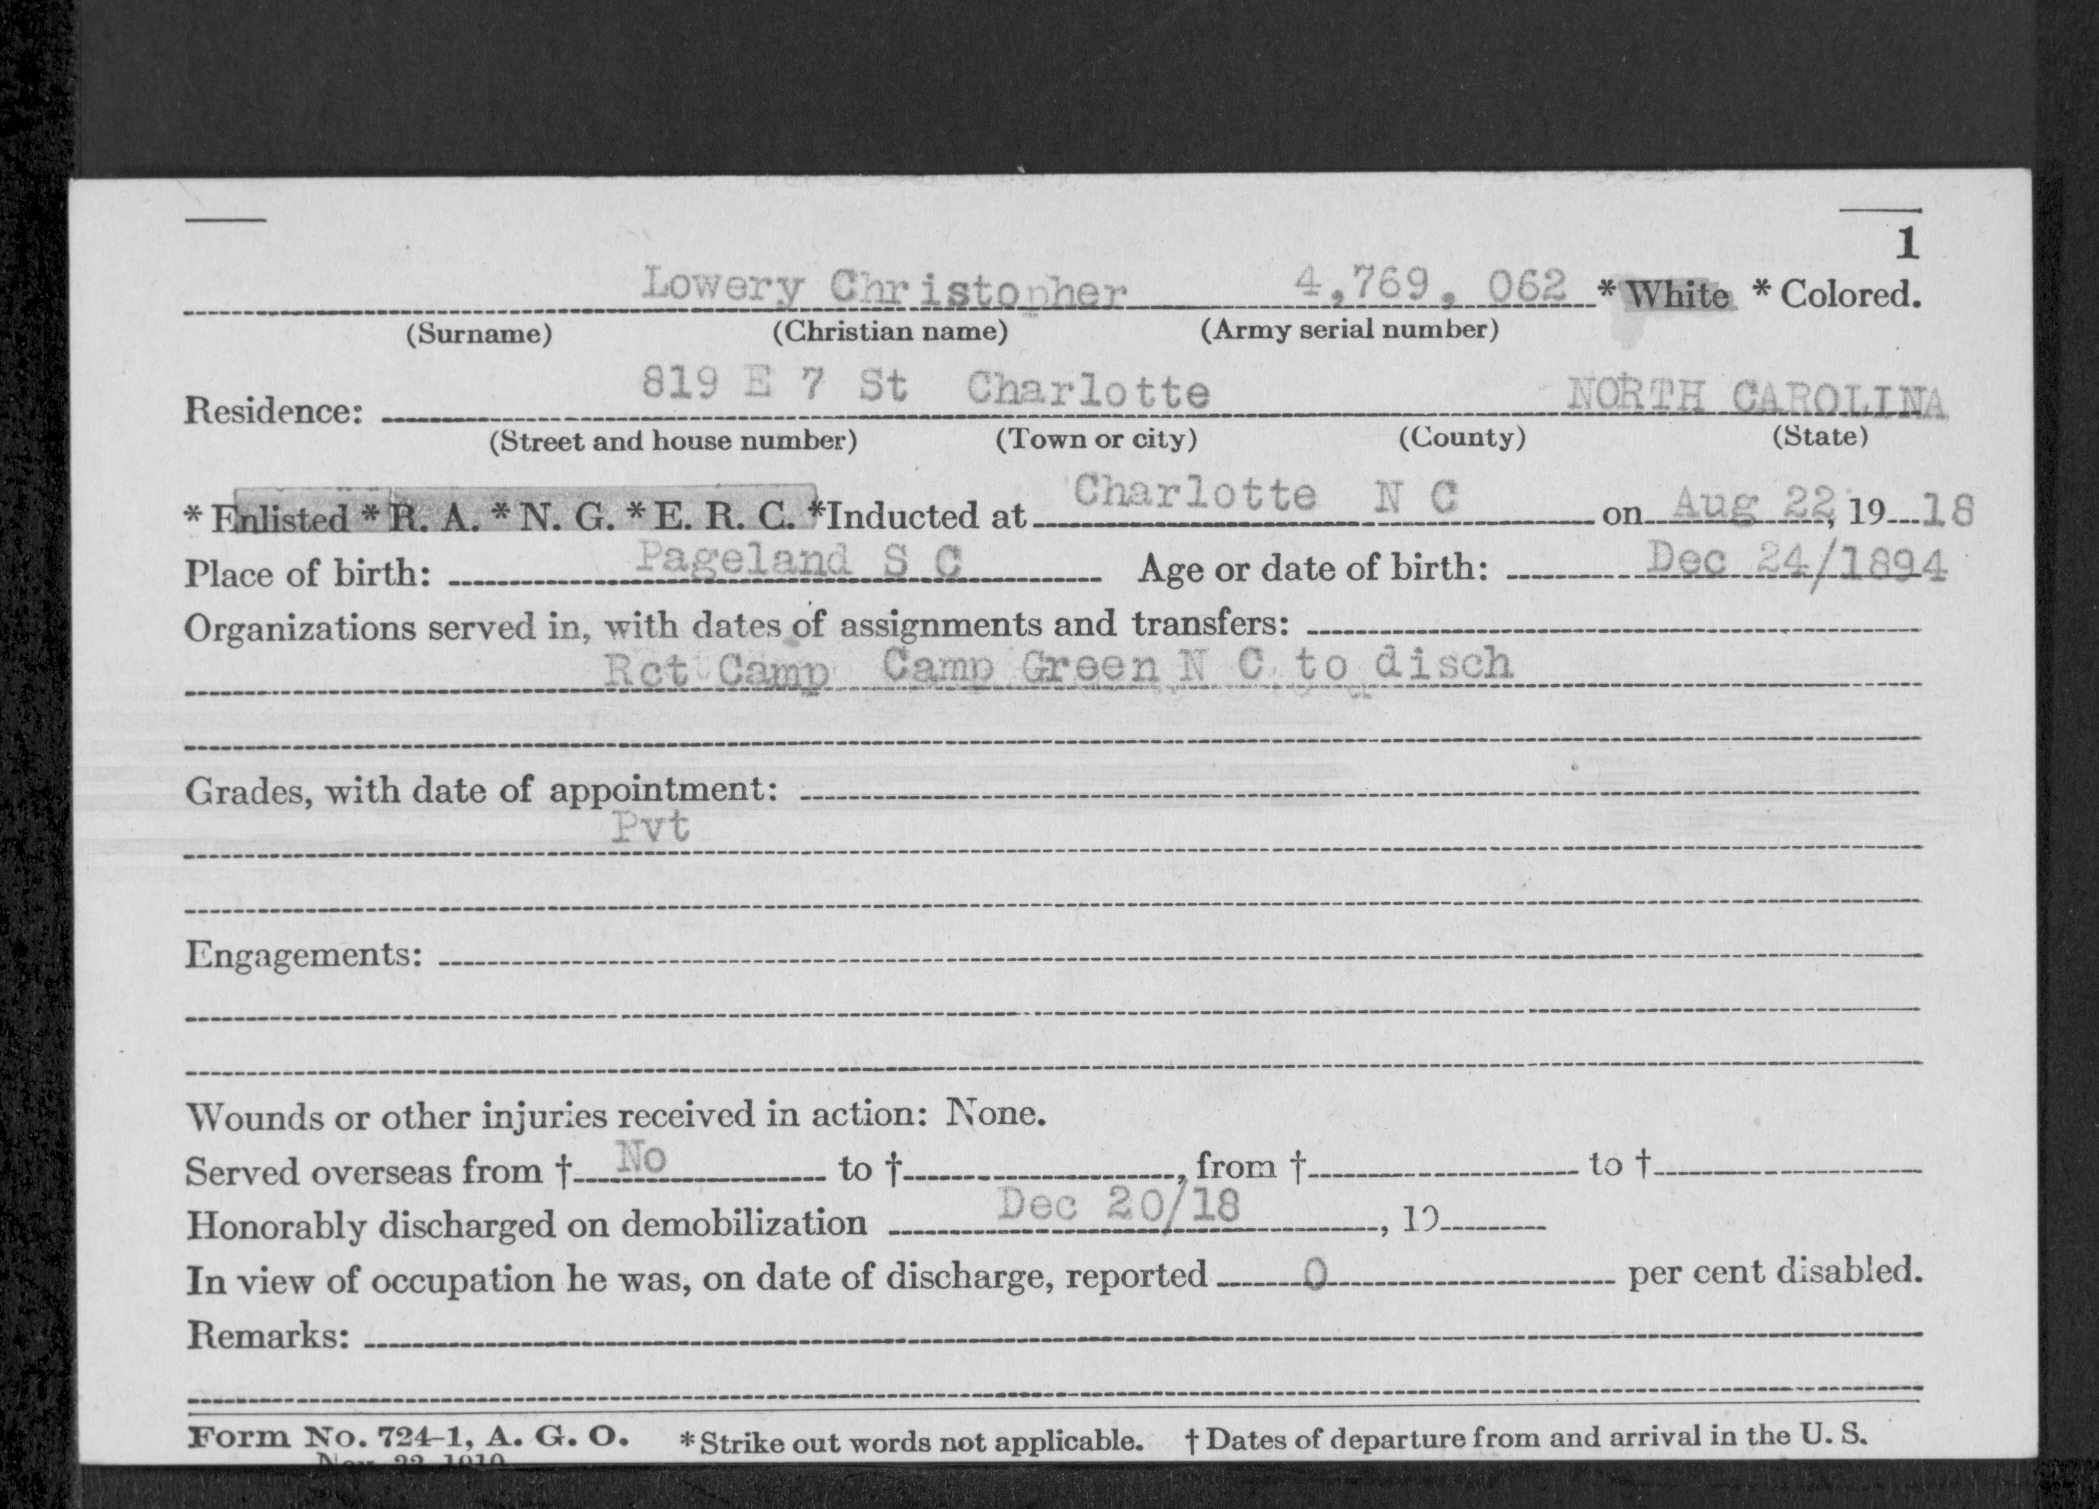 1
Lowery Christopher 4,769, 062 * White * Colored.
(Surname) (Christian name) (Army serial number)
819 E 7 St Charlotte NORTH CAROLINA
Residence:
(Street and house number) (Town or city) (County) (State)
* Enlisted * R. A. * N. G. * E. R. C. *Inducted at Charlotte N C on Aug 22, 19 18
Place of birth: Pageland S C Age or date of birth: Dec 24/1894
Organizations served in, with dates of assignments and transfers:
Rct Camp Camp Green N C to disch
Grades, with date of appointment:
Pvt
Engagements:
Wounds or other injuries received in action: None.
Served overseas from † No to †, from † to †
Honorably discharged on demobilization Dec 20/18, 19
In view of occupation he was, on date of discharge, reported 0 per cent disabled.
Remarks:
Form No. 724-1, A. G. O. * Strike out words not applicable. † Dates of departure from and arrival in the U. S.
Nov. 22, 1919